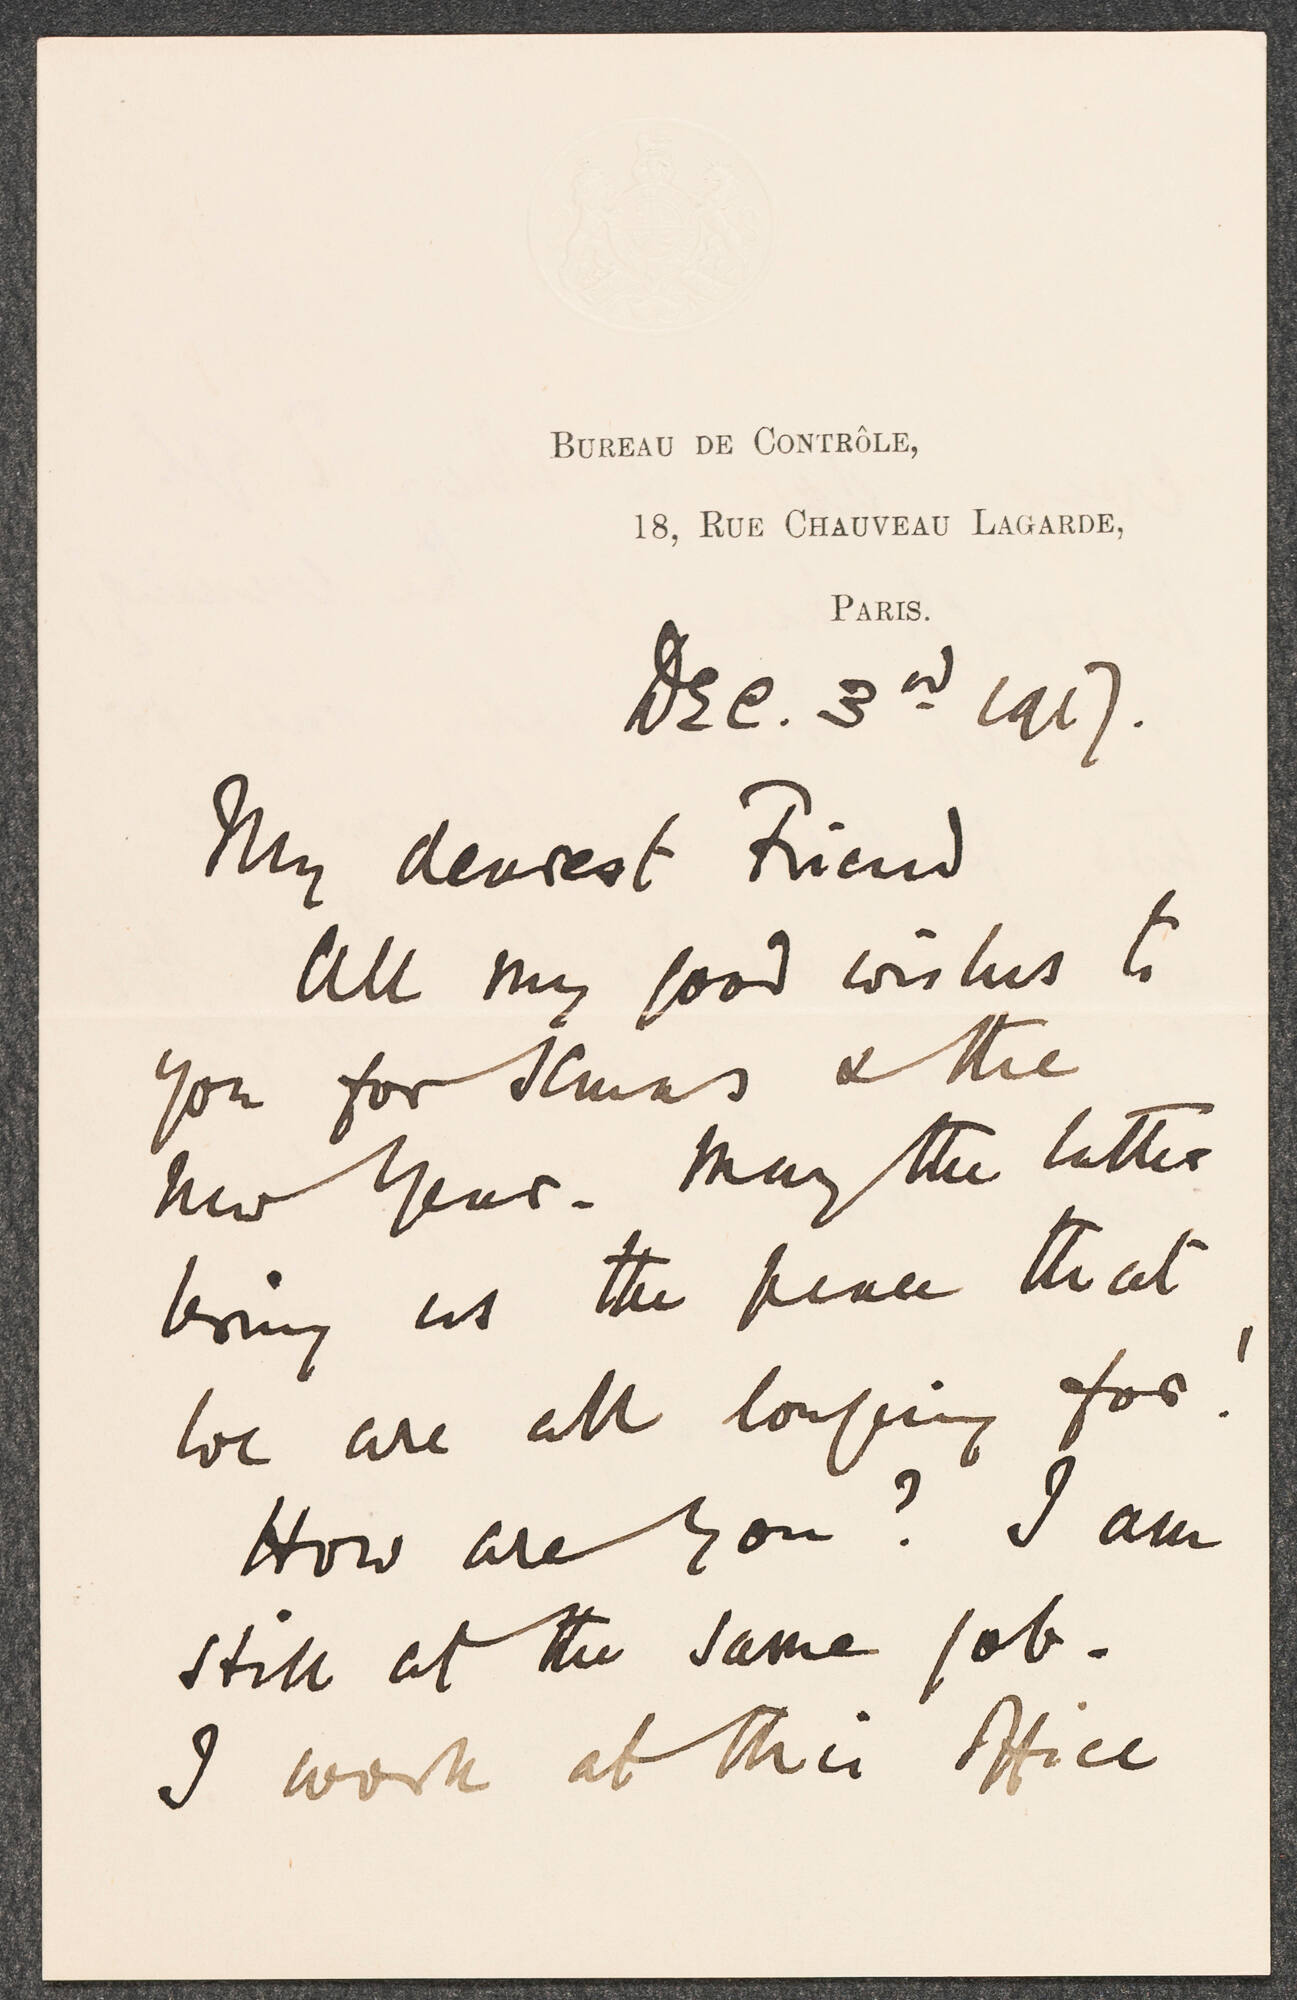 BUREAU DE CONTRÔLE,
18, RUE CHAUVEAU LAGARDE,
PARIS.
Dec. 3rd 1917.
My dearest Friend
All my good wishes to
you for Xmas & the
New Year. May the latter
bring us the peace that
we are all longing for!
How are you? I am
still at the same job.
I work at this Office